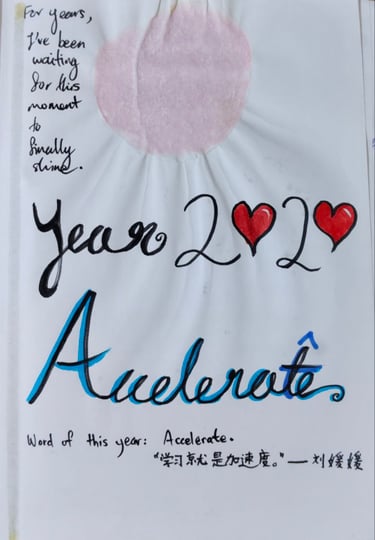 For years,
I've been
waiting
for this
moment
to
finally
shine.
Year 2020
Accelerate
Word of this year: Accelerate.
"学习就是加速度。" — 刘媛媛